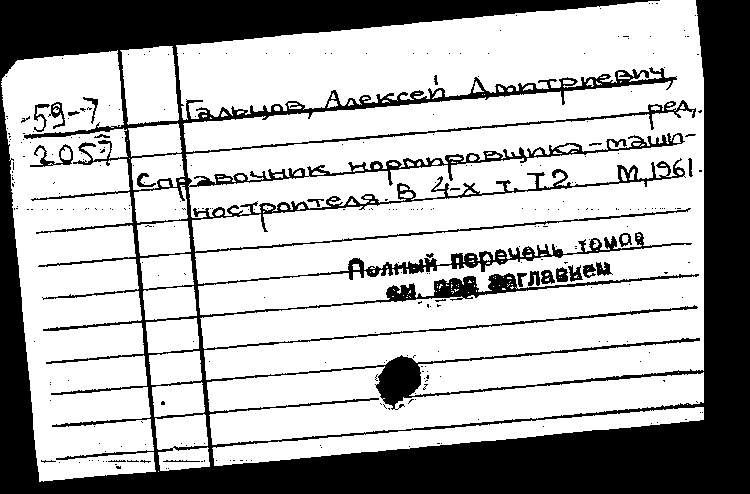 59-7
2057
Гальцов, Алексей Дмитриевич,
ред.
Справочник нормировщика-маши-
ностроителя. В 4-х т. Т.2. М, 1961.
Полный перечень томов
см. под заглавием